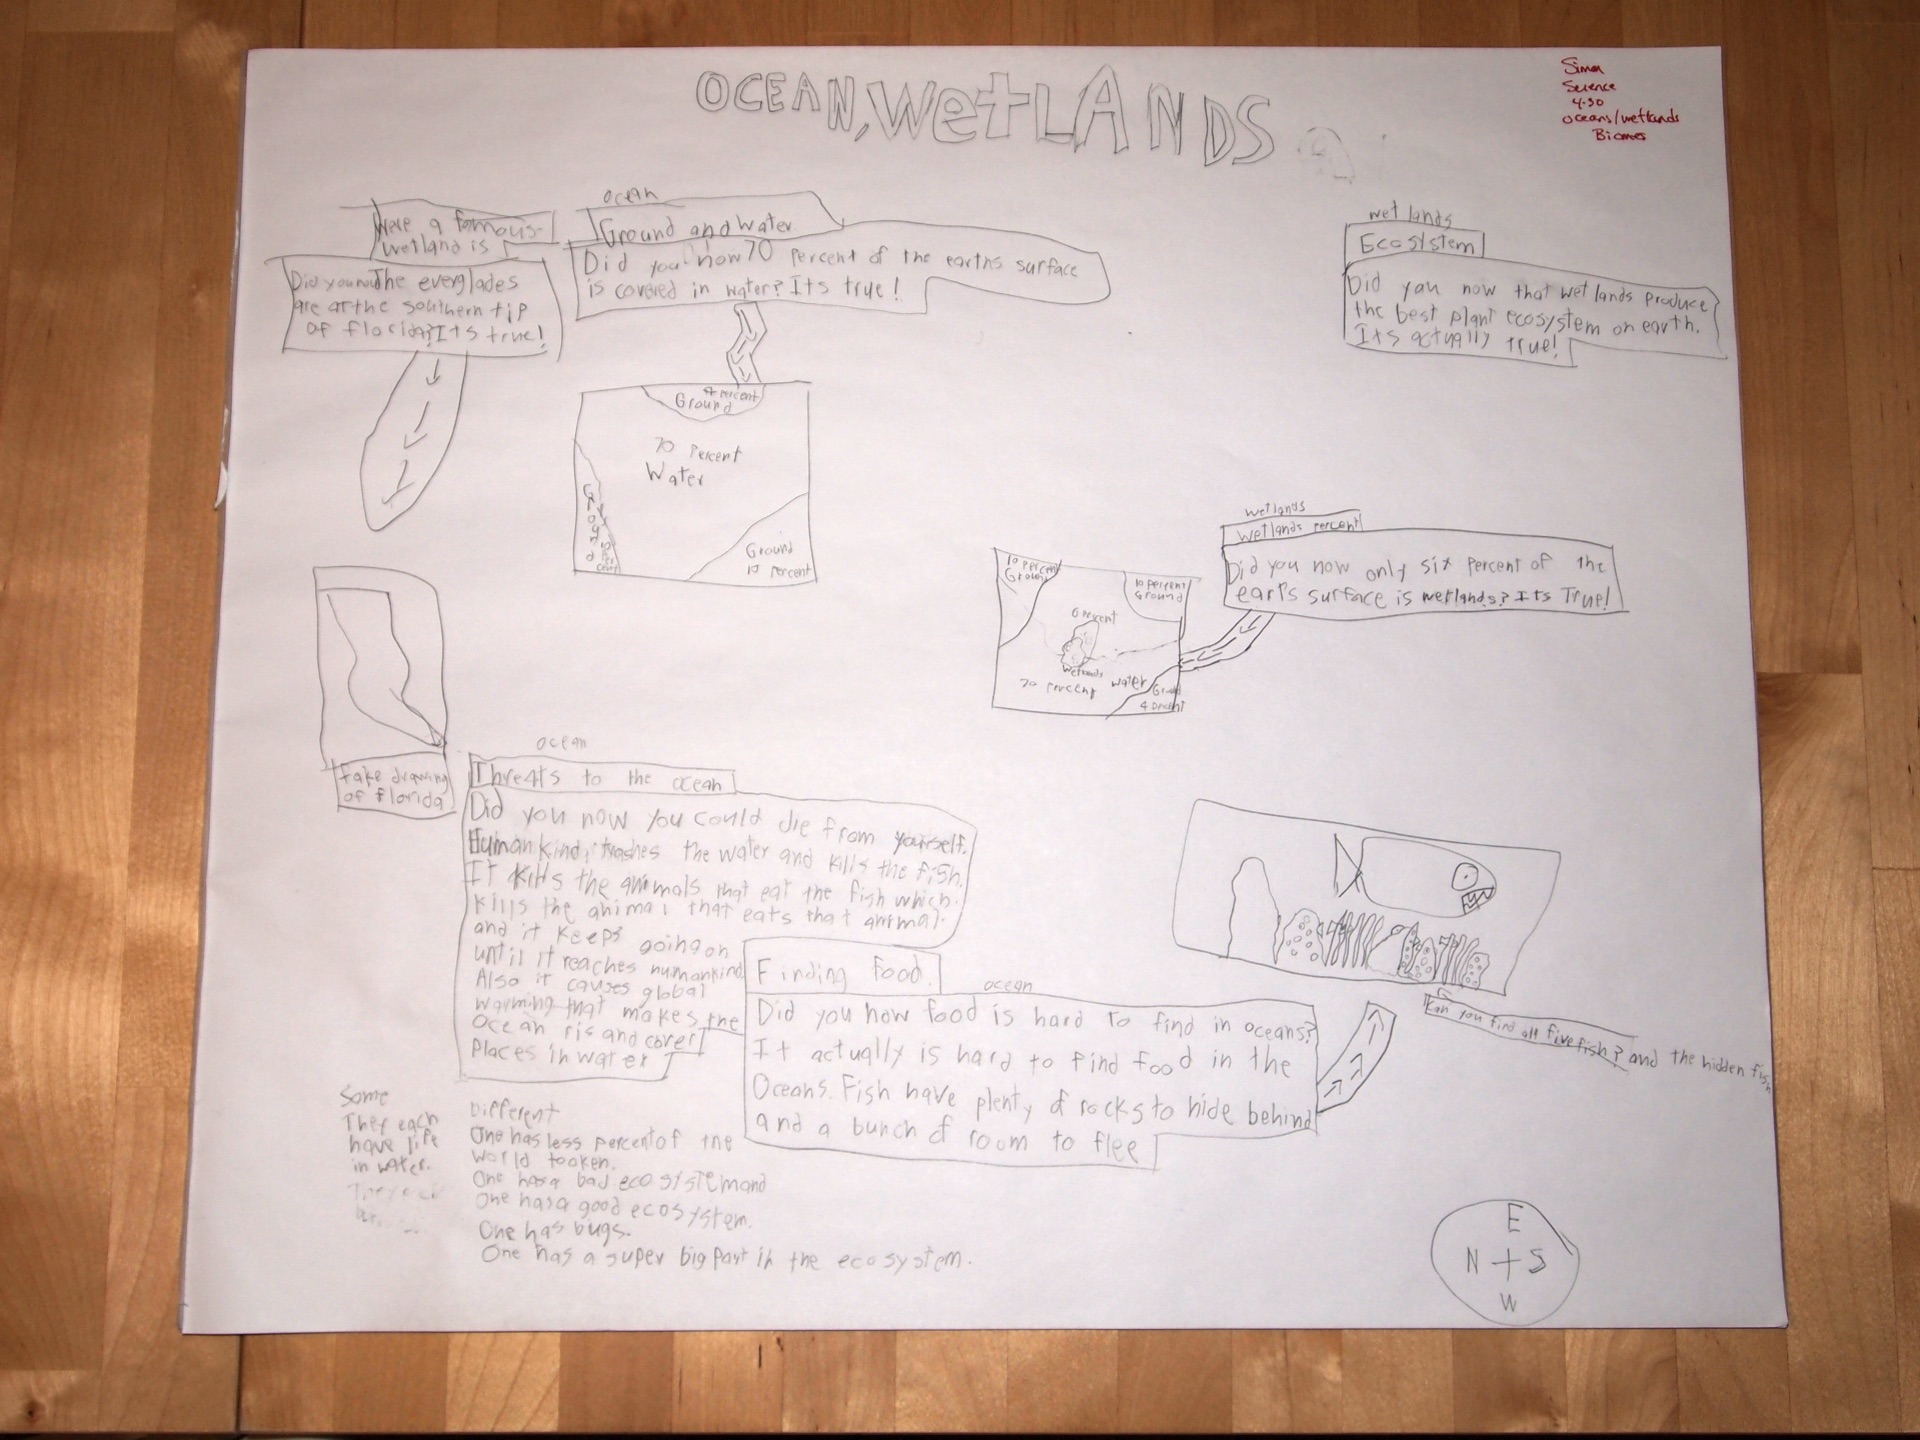 OCEAN, WetLANDS
Simon
Science
4-30
oceans/wetlands
Biomes
Were a famous
wetland is
Did you now The everglades
are at the southern tip
of florida? Its true!
ocean
Ground and Water
Did you now 70 percent of the earths surface
is covered in water? Its true!
percent
Ground
70 percent
Water
Ground
percent
Ground
10 percent
wet lands
Ecosystem
Did you now that wetlands produce
the best plant ecosystem on earth.
Its actually true!
wetlands
wetlands percent
Did you now only six percent of the
earls surface is wetlands? Its True!
10 percent
Ground
10 percent
Ground
6 percent
wetlands
70 percent water
Ground
4 percent
fake drawing
of florida
ocean
Threats to the ocean
Did you now you could die from yourself.
Human kind, trashes the water and kills the fish.
It kills the animals that eat the fish which
kills the animal that eats that animal.
and it keeps going on
until it reaches humankind
Also it causes global
warming that makes the
Ocean ris and cover
places in water
Finding food.
ocean
Did you now food is hard to find in oceans?
It actually is hard to find food in the
Oceans. Fish have plenty of rocks to hide behind
and a bunch of room to flee
Kan you find all five fish? and the hidden fish
Some
They each
have life
in water.
Different
One has less percent of the
world tooken.
One has a bad eco systemand
One has a good ecosystem.
One has bugs.
One has a super big part in the ecosystem.
E
N S
W